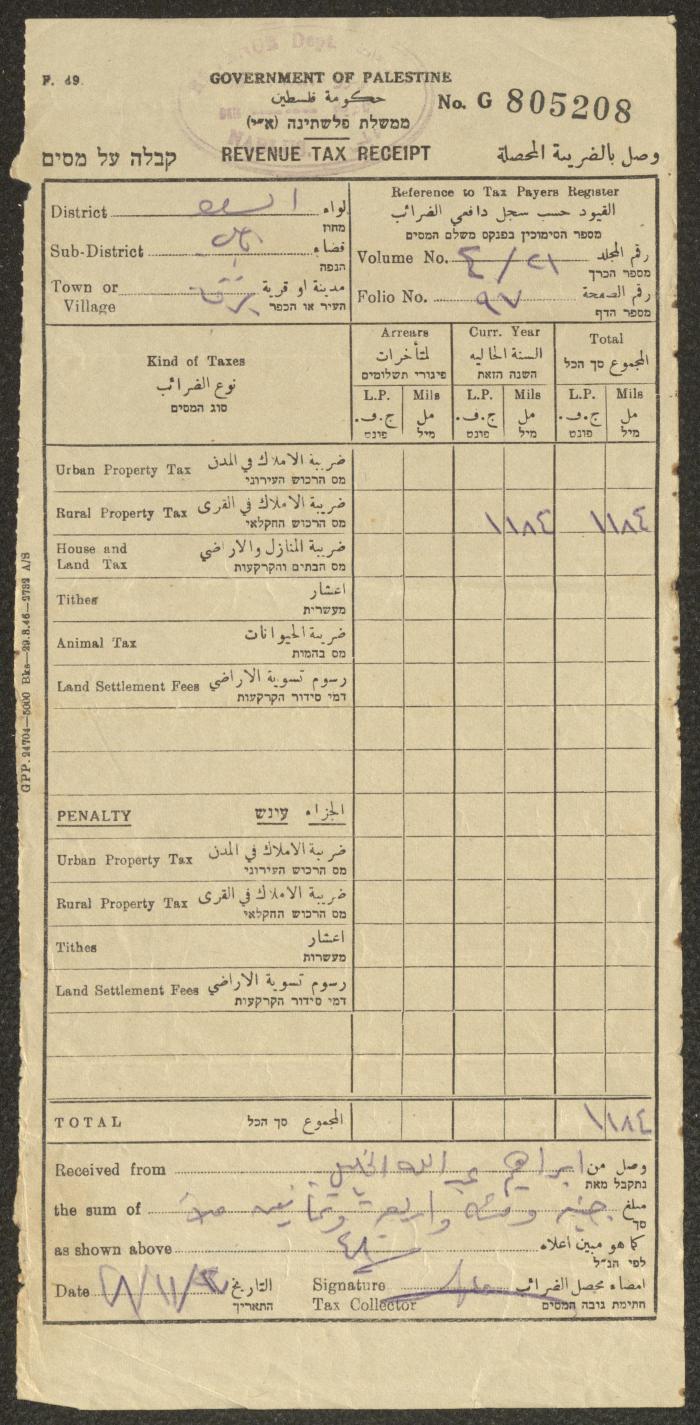 F. 49.
GOVERNMENT OF PALESTINE
حكومة فلسطين
No. G 805208
ממשלת פלשתינה (א״י)
קבלה על מסים REVENUE TAX RECEIPT وصل بالضريبة المحصلة
REVENUE Dept.
District لواء
מחוז
Sub-District قضاء
הנפה
Town or مدينة او قرية
Village העיר או הכפר
Reference to Tax Payers Register
القيود حسب سجل دافعي الضرائب
מספר הסימוכין בפנקס משלם המסים
Volume No. ٤/٢١ رقم المجلد
מספר הכרך
Folio No. ٩٧ رقم الصفحة
מספר הדף
Kind of Taxes
نوع الضرائب
סוג המסים
Arrears
لمتأخرات
פיגורי תשלומים
Curr. Year
السنة الحالية
השנה הזאת
Total
المجموع סך הכל
L.P. Mils L.P. Mils L.P. Mils
ج.ف. مل ج.ف. مل ج.ف. مل
פונט מיל פונט מיל פונט מיל
Urban Property Tax ضريبة الاملاك في المدن
מס הרכוש העירוני
Rural Property Tax ضريبة الاملاك في القرى ١ ١٨٤ ١ ١٨٤
מס הרכוש החקלאי
House and ضريبة المنازل والاراضي
Land Tax מס הבתים והקרקעות
Tithes اعشار
מעשרית
Animal Tax ضريبة الحيوانات
מס בהמות
Land Settlement Fees رسوم تسوية الاراضي
דמי סידור הקרקעות
PENALTY עינש الجزاء
Urban Property Tax ضريبة الاملاك في المدن
מס הרכוש העירוני
Rural Property Tax ضريبة الاملاك في القرى
מס הרכוש החקלאי
Tithes اعشار
מעשרות
Land Settlement Fees رسوم تسوية الاراضي
דמי סידור הקרקעות
TOTAL סך הכל المجموع ١ ١٨٤
Received from ابراهيم عبد الله الخليل وصل من
נתקבל מאת
the sum of جنيه ومئة واربعة وثمانين ملا مبلغ
סך
as shown above كما هو مبين اعلاه
לפי הנ״ל
Date التاريخ
התאריך
Signature امضاء محصل الضرائب
Tax Collector חתימת גובה המסים
GPP. 24704—5000 Bks—29.8.46—2732 A/S